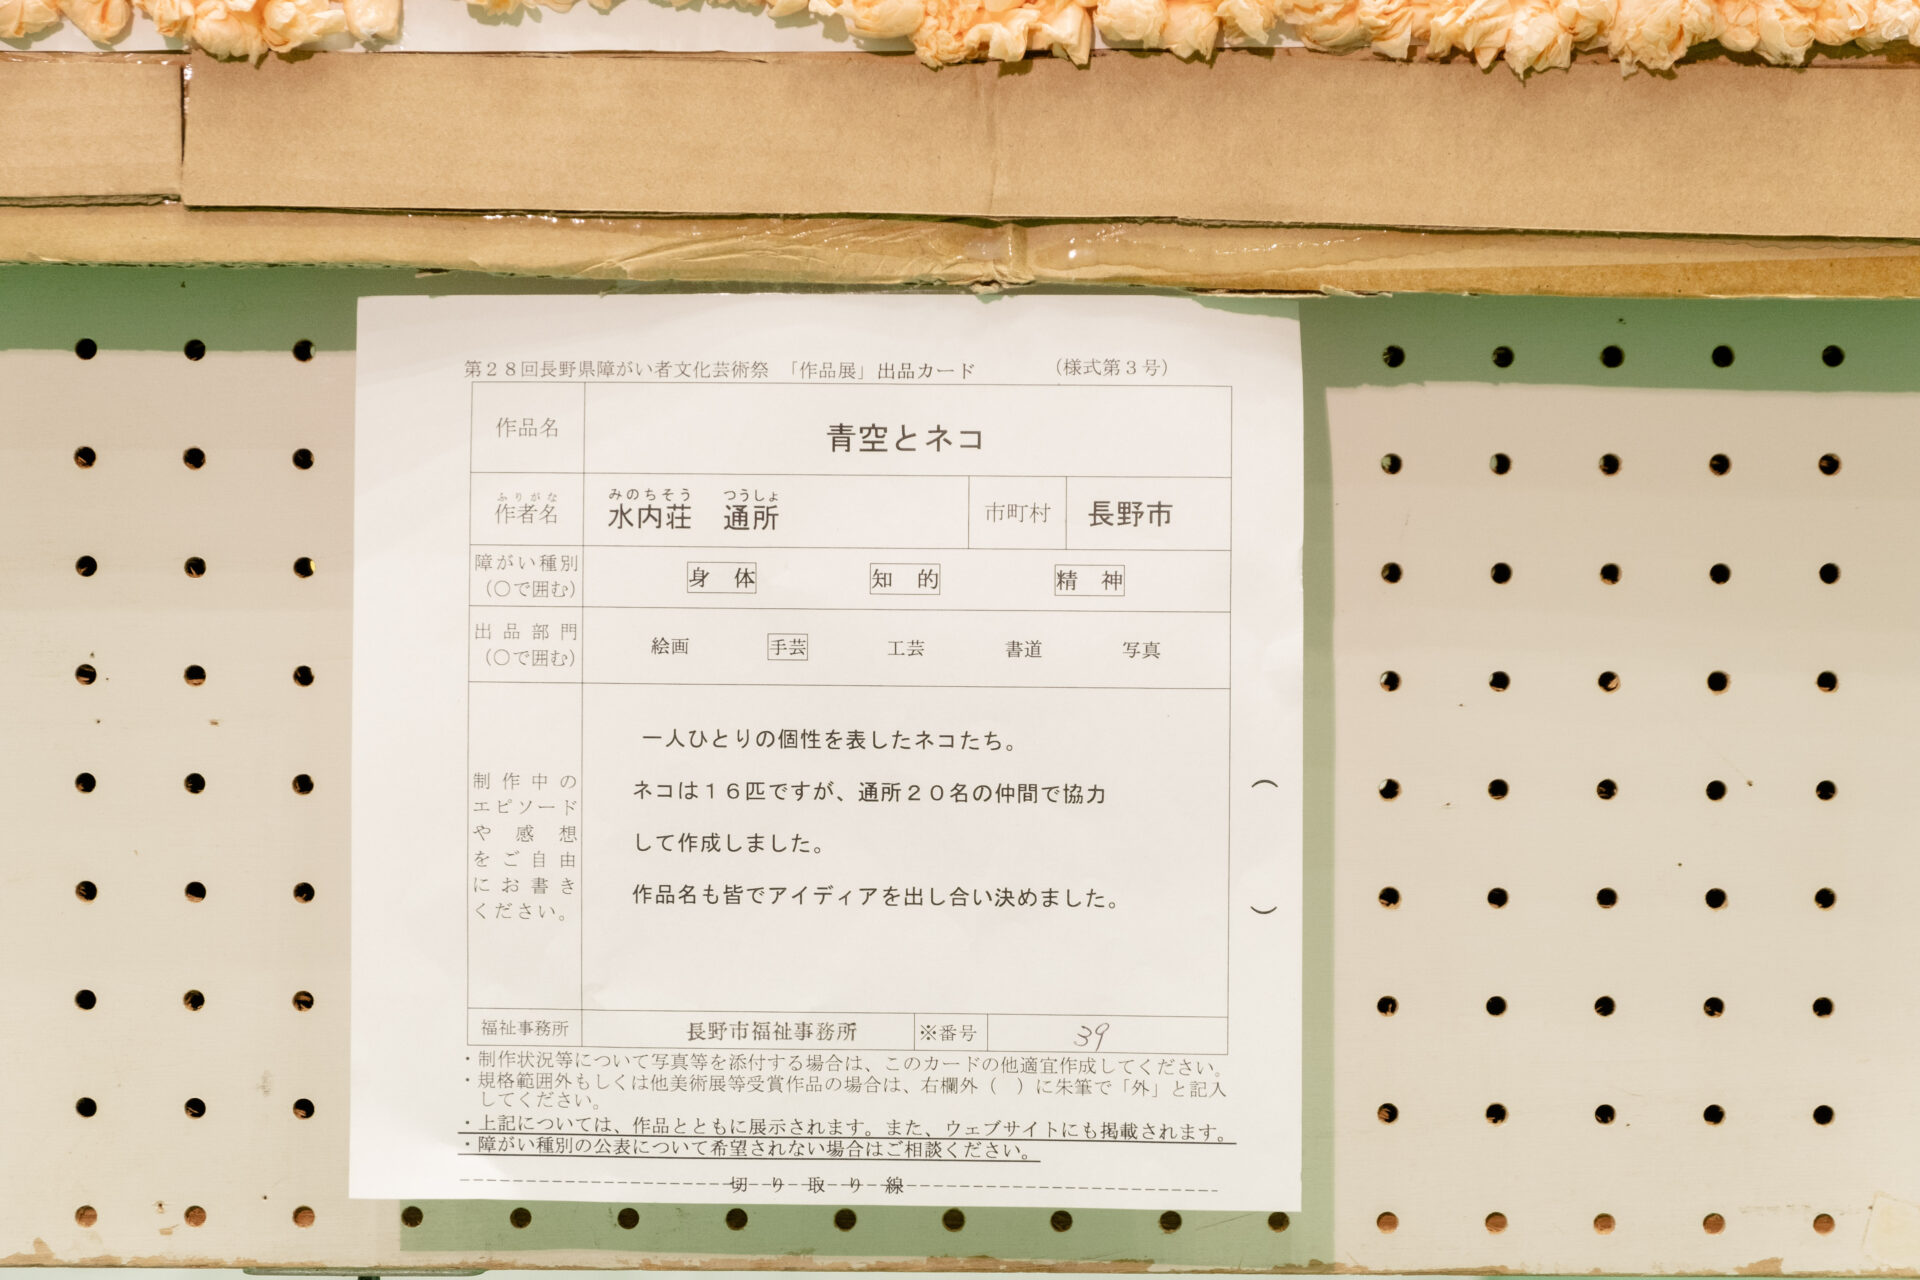 第２８回長野県障がい者文化芸術祭 「作品展」出品カード (様式第３号)
作品名 青空とネコ
ふりがな みのちそう つうしょ
作者名 水内荘 通所 市町村 長野市
障がい種別 身 体 知 的 精 神
(○で囲む)
出品部門 絵画 手芸 工芸 書道 写真
(○で囲む)
制作中の
エピソード
や感想
をご自由
にお書き
ください。
一人ひとりの個性を表したネコたち。
ネコは１６匹ですが、通所２０名の仲間で協力
して作成しました。
作品名も皆でアイディアを出し合い決めました。
( )
福祉事務所 長野市福祉事務所 ※番号 39
・制作状況等について写真等を添付する場合は、このカードの他適宜作成してください。
・規格範囲外もしくは他美術展等受賞作品の場合は、右欄外( )に朱筆で「外」と記入
してください。
・上記については、作品とともに展示されます。また、ウェブサイトにも掲載されます。
・障がい種別の公表について希望されない場合はご相談ください。
切り取り線